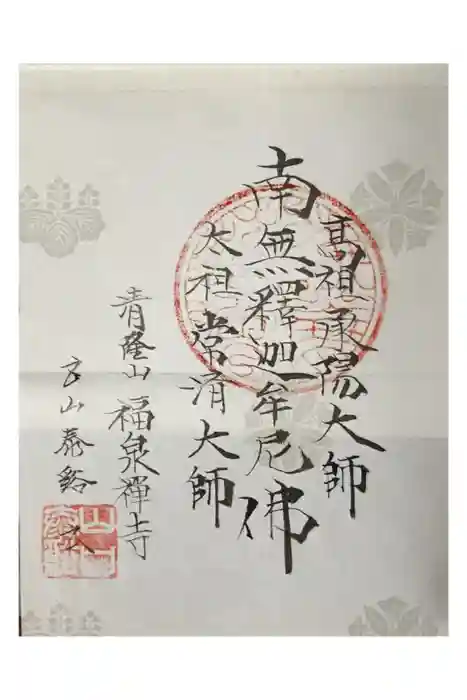 高祖承陽大師
南無釋迦牟尼佛
太祖常済大師
青隆山 福泉禅寺
山泰